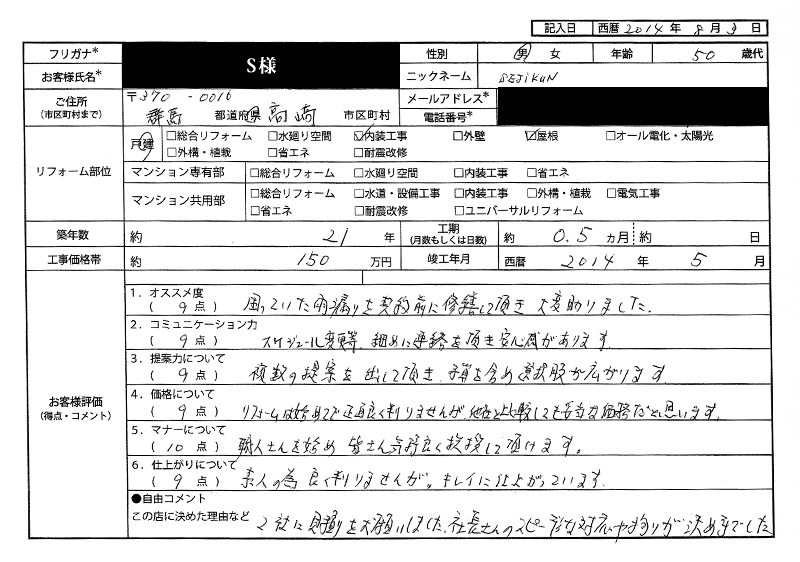 記入日 西暦 2014年 8月 3日
フリガナ* S様 性別 男 女 年齢 50 歳代
お客様氏名* ニックネーム SEJIKUN
ご住所 (市区町村まで) 〒370-0016 群馬 都道府県 高崎 市区町村 メールアドレス*
電話番号*
リフォーム部位 戸建 □総合リフォーム □水廻り空間 ☑内装工事 □外壁 ☑屋根 □オール電化・太陽光
□外構・植栽 □省エネ □耐震改修
マンション専有部 □総合リフォーム □水廻り空間 □内装工事 □省エネ
マンション共用部 □総合リフォーム □水道・設備工事 □内装工事 □外構・植栽 □電気工事
□省エネ □耐震改修 □ユニバーサルリフォーム
築年数 約 21 年 工期 (月数もしくは日数) 約 0.5 ヵ月 約 日
工事価格帯 約 150 万円 竣工年月 西暦 2014 年 5 月
お客様評価 (得点・コメント)
1.オススメ度
( 9 点 ) 困っていた雨漏りを契約前に修繕して頂き大変助りました.
2.コミュニケーション力
( 9 点 ) スケジュール変更等、細めに連絡を頂き安心感があります
3.提案力について
( 9 点 ) 複数の提案を出して頂き、予算を含め選択肢が広がります
4.価格について
( 9 点 ) リフォームは始めてで正直良く判りませんが、他社と比較しても妥当な価格だと思います.
5.マナーについて
( 10 点 ) 職人さんを始め 皆さん気持良く挨拶して頂けます。
6.仕上がりについて
( 9 点 ) 素人の為 良く判りませんが。キレイに仕上がっています.
●自由コメント
この店に決めた理由など 2社に見積りをお願いしました.社長さんのスピーディな対応や拘りが決め手でした